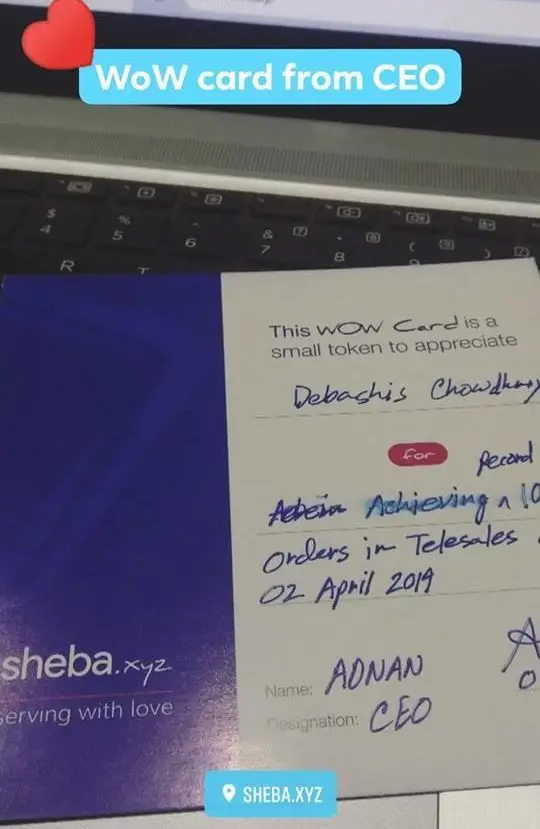 WoW card from CEO
$ % & (
4 5 6 7 8 9
R T
This WOW Card is a
small token to appreciate
Debashis Chowdhury
for Record
Achieving ^ 10
Orders in Telesales
02 April 2019
sheba.xyz
serving with love
Name: ADNAN
Designation: CEO
SHEBA.XYZ